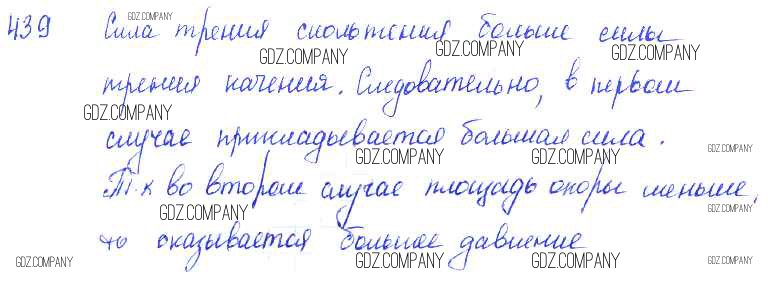 439 Сила трения скольжения больше силы
трения качения. Следовательно, в первом
случае прикладывается большая сила.
Т.к во втором случае площадь опоры меньше,
то оказывается большее давление
GDZ.COMPANY
GDZ.COMPANY
GDZ.COMPANY
GDZ.COMPANY
GDZ.COMPANY
GDZ.COMPANY
GDZ.COMPANY
GDZ.COMPANY
GDZ.COMPANY
GDZ.COMPANY
GDZ.COMPANY
GDZ.COMPANY
GDZ.COMPANY
GDZ.COMPANY